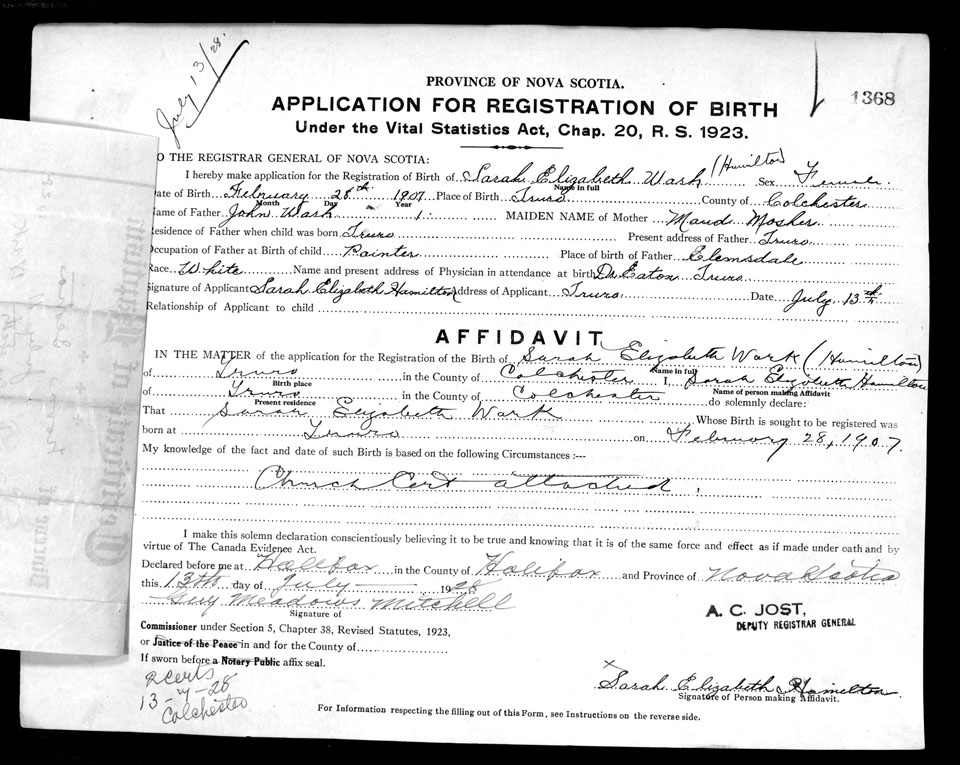 July 13/28.
PROVINCE OF NOVA SCOTIA.
1368
APPLICATION FOR REGISTRATION OF BIRTH
Under the Vital Statistics Act, Chap. 20, R. S. 1923.
O THE REGISTRAR GENERAL OF NOVA SCOTIA:
I hereby make application for the Registration of Birth of Sarah Elizabeth Wark (Hamilton) Sex Female
Name in full
ate of Birth February 28th 1907 Place of Birth Truro County of Colchester
Month Day Year
ame of Father John Wark MAIDEN NAME of Mother Maud Mosher
esidence of Father when child was born Truro Present address of Father Truro
ccupation of Father at Birth of child Painter Place of birth of Father Elemsdale
ace. White Name and present address of Physician in attendance at birth Dr. Eaton Truro
ignature of Applicant Sarah Elizabeth Hamilton Address of Applicant Truro. Date July 13th
Relationship of Applicant to child
AFFIDAVIT
IN THE MATTER of the application for the Registration of the Birth of Sarah Elizabeth Wark (Hamilton)
Name in full
of Truro in the County of Colchester I, Sarah Elizabeth Hamilton
Birth place Name of person making Affidavit
of Truro in the County of Colchester do solemnly declare:
Present residence
That Sarah Elizabeth Wark Whose Birth is sought to be registered was
born at Truro on February 28, 1907.
My knowledge of the fact and date of such Birth is based on the following Circumstances :---
Church Cert attached.
I make this solemn declaration conscientiously believing it to be true and knowing that it is of the same force and effect as if made under oath and by
virtue of The Canada Evidence Act.
Declared before me at Halifax in the County of Halifax and Province of Nova Scotia
this 13th day of July 1928
Guy Meadows Mitchell
Signature of
A. C. JOST,
DEPUTY REGISTRAR GENERAL
Commissioner under Section 5, Chapter 38, Revised Statutes, 1923,
or Justice of the Peace in and for the County of
If sworn before a Notary Public affix seal.
2 Certs
13-7-28
Colchester
Sarah Elizabeth Hamilton.
Signature of Person making Affidavit.
For Information respecting the filling out of this Form, see Instructions on the reverse side.